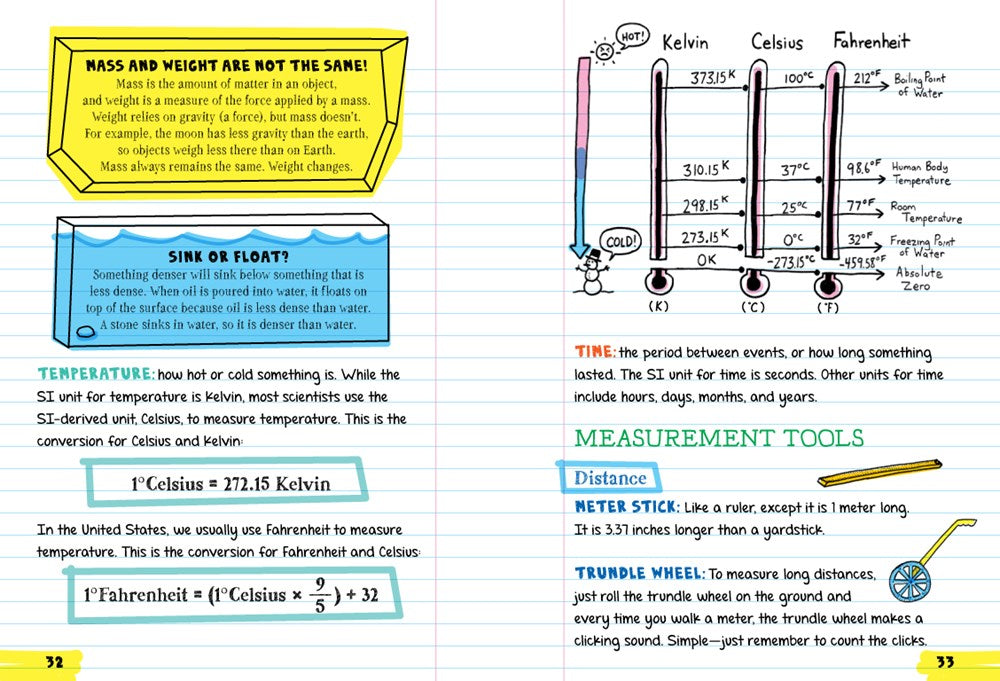 MASS AND WEIGHT ARE NOT THE SAME!
Mass is the amount of matter in an object,
and weight is a measure of the force applied by a mass.
Weight relies on gravity (a force), but mass doesn’t.
For example, the moon has less gravity than the earth,
so objects weigh less there than on Earth.
Mass always remains the same. Weight changes.
SINK OR FLOAT?
Something denser will sink below something that is
less dense. When oil is poured into water, it floats on
top of the surface because oil is less dense than water.
A stone sinks in water, so it is denser than water.
TEMPERATURE: how hot or cold something is. While the
SI unit for temperature is Kelvin, most scientists use the
SI-derived unit, Celsius, to measure temperature. This is the
conversion for Celsius and Kelvin:
1°Celsius = 272.15 Kelvin
In the United States, we usually use Fahrenheit to measure
temperature. This is the conversion for Fahrenheit and Celsius:
1°Fahrenheit = (1°Celsius × 9/5) + 32
32
HOT!
Kelvin Celsius Fahrenheit
373.15 K 100°C 212°F Boiling Point
of Water
310.15 K 37°C 98.6°F Human Body
Temperature
298.15 K 25°C 77°F Room
Temperature
273.15 K 0°C 32°F Freezing Point
of Water
COLD!
0K -273.15°C -459.58°F Absolute
Zero
(K) (°C) (°F)
TIME: the period between events, or how long something
lasted. The SI unit for time is seconds. Other units for time
include hours, days, months, and years.
MEASUREMENT TOOLS
Distance
METER STICK: Like a ruler, except it is 1 meter long.
It is 3.37 inches longer than a yardstick.
TRUNDLE WHEEL: To measure long distances,
just roll the trundle wheel on the ground and
every time you walk a meter, the trundle wheel makes a
clicking sound. Simple—just remember to count the clicks.
33